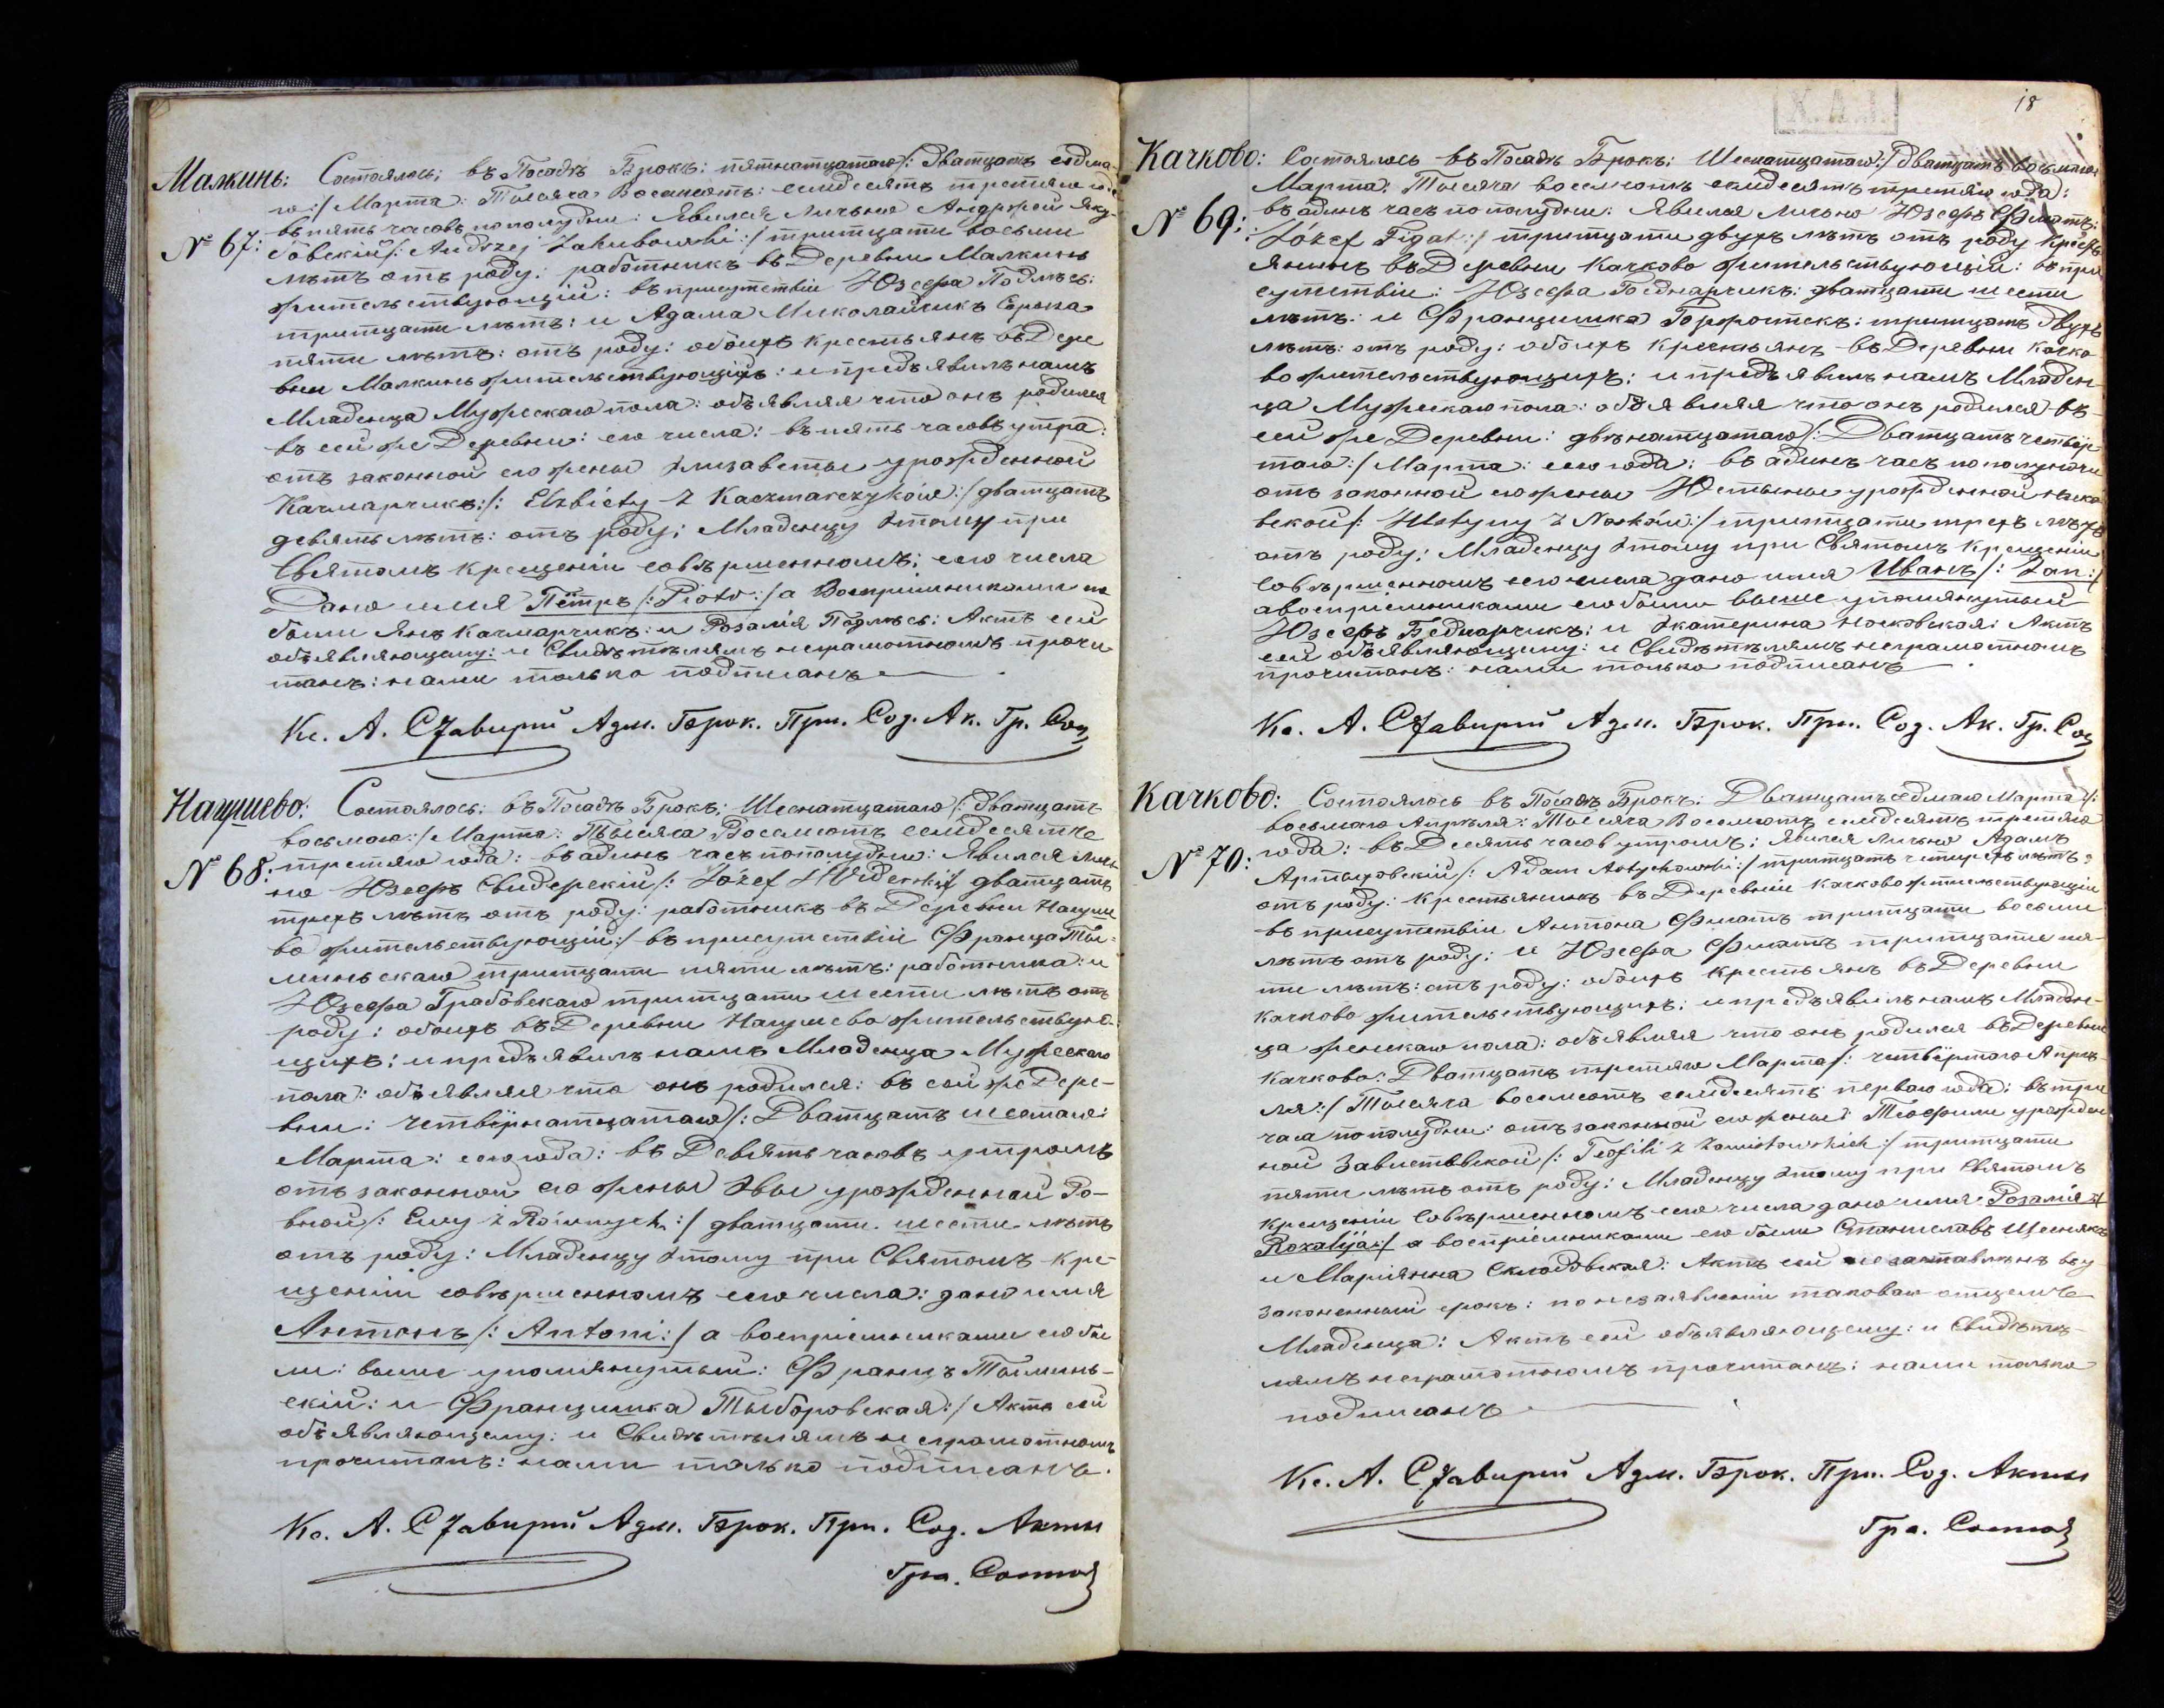 Малкинь: Состоялось: въ Посадѣ Брокъ: пятнатцатаго/: дватцать седма-
го:/ Марта: Тысяча Восемсотъ: семдесятъ третяго года
№ 67: въ пять часовъ пополудни: Явился Лично Андржей Яку-
бовскій/: Andrzej Jakubowski:/ тритцати восьми
лѣтъ отъ роду: работникъ въ Деревни Малкинь
жительствующій: въ присутствіи Юзефа Подлѣсь:
тритцати лѣтъ: и Адама Миколайчикъ Сорока
пяти лѣтъ: отъ роду: обоихъ крестьянъ въ Дере
вни Малкинь жительствующихъ: и предъявилъ намъ
Младенца Мужескаго пола: объявляя что онъ родился
въ сей же Деревни: сего числа: въ пять часовъ утра:
отъ законной его жены Элизаветы урожденной
Качмарчикъ:/: Elzbiety z Kaczmarczyków:/ дватцать
девять лѣтъ: отъ роду; Младенцу этому при
Святомъ крещеніи совѣршенномъ: сего числа
Дано имя Пётръ /: Piotr:/ а Воспріимниками его
были Янъ Качмарчикъ: и Розалія Подлѣсь: Актъ сей
объявляющему: и Свидѣтѣлямъ неграмотномъ прочи
танъ: нами только подписанъ
Кс. А. Ставирый Адм. Брок. При. Сод. Ак. Гр. Сос
Нагушево: Состоялось: въ Посадѣ Брокъ: Шеснатцатаго/: дватцать
восьмаго:/ Марта: Тысяча Восемсотъ семдесятъ
№ 68: третяго года: въ адинъ часъ пополудню: Явился Лич
но Юзефъ Свидерскій/: Józef SWiderski:/ дватцать
трехъ лѣтъ отъ роду: работникъ въ Деревни Нагуше
во жительствующій:/ въ присутствіи Франца Тым-
миньскаго тритцати пяти лѣтъ: работника: и
Юзефа Грабовскаго тритцати шести лѣтъ отъ
роду: обоихъ въ Деревни Нагушево жительствую-
щихъ: и предъявилъ намъ Младенца Мужескаго
пола: объявляя что онъ родился: въ сей же Дере-
вни: четвёрнатцатаго/: Дватцать шестаго:
Марта: сего года: въ Девять часовъ утромъ
отъ законной его жены Эвы урожденной Ро-
вной/: Ewy z Równych:/ дватцати шести лѣтъ
отъ роду: Младенцу этому при Святомъ кре-
щеніи совѣршенномъ сего числа: дано имя
Антонъ /: Antoni:/ а воспріемниками его бы
ли: выше упомянутый: Францъ Тыминь-
скій: и Францишка Тыборовская:/ Актъ сей
объявляющему: и Свидѣтѣлямъ неграмотномъ
прочитанъ: нами только подписанъ.
Кс. А. Ставирый Адм. Брок. При. Сод. Акты
Гра. Состоя
18
Качково: Состоялось въ Посадѣ Брокъ: Шеснатцатаго:/ дватцать восьмаго
Марта: Тысяча восемсотъ семдесятъ третяго года:
№ 69: въ адинъ часъ пополудни: Явился Лично Юзефъ Фигатъ:
/: Józef Figat:/ тритцати двухъ лѣтъ отъ роду Кресть
янинъ въ Деревни Качково жительствующій: въ при
сутствіи: Юзефа Беднарчикъ: дватцати шести
лѣтъ: и Францишка Горростекъ: тритцать двухъ
лѣтъ: отъ роду: обоихъ крестьянъ въ Деревни Качко-
во жительствующихъ: и предъявилъ намъ Младен-
ца Мужескаго пола: объявляя что онъ родился въ
сей же Деревни: двѣнатцатаго/: Дватцать четвёр-
таго:/ Марта: сего года: въ адинъ часъ пополуночи
отъ законной его жены Юстыны урожденной Носко
вской/: Justyny z Nosków:/ тритцати трехъ лѣтъ
отъ роду: Младенцу этому при Святомъ крещеніи
совѣршенномъ сего числа дано имя Иванъ /: Jan:/
а воспріемниками его были выше упомянутый
Юзефъ Беднарчикъ: и Экатерина Носковская: Актъ
сей объявляющему: и Свидѣтѣлямъ неграмотномъ
прочитанъ: нами только подписанъ
Кс. А. Ставирый Адм. Брок. При. Сод. Ак. Гр. Сос
Качково: Состоялось въ Посадѣ Брокъ: Дватцать седмаго Марта/:
восьмаго Апрѣля: Тысяча Восемсотъ семдесятъ третяго
№ 70: года: въ Десять часов утромъ: Явился Лично Адамъ
Артыховскій/: Adam Artychowski:/ тритцать чтырехъ лѣтъ:
отъ роду: крестьянинъ въ Деревни Качково жительствующій
въ присутствіи Антона Фигатъ тритцати восьми
лѣтъ отъ роду: и Юзефа Фигатъ тритцати пя-
ти лѣтъ: отъ роду: обоихъ крестьянъ въ Деревни
Качково жительствующихъ: и предъявилъ намъ Младен-
ца женскаго пола: объявляя что онъ родился въ Деревни
Качково: Дватцать третяго Марта/: четвёртаго Апрѣ-
ля:/ Тысяча восемсотъ семдесятъ перваго года: въ три
часа пополудни: отъ законной его жены: Теофили урожден
ной Завистовской/: Teofili z Zawistowskich:/ тритцати
пяти лѣтъ отъ роду: Младенцу этому при Святомъ
крещеніи совѣршенномъ сего числа дано имя Розалія:/
Rozalija:/ а воспріемниками его были Станиславъ Щесняк
и Маріянна Склодовская: Актъ сей
законенный срокъ: по незаявленіи таковаго отцемъ
Младенца: Актъ сей объявляющему: и Свидѣтѣ-
лямъ неграмотномъ прочитанъ: нами только
подписанъ
Кс. А. Ставирый Адм. Брок. При. Сод. Акты
Гра. Состоя